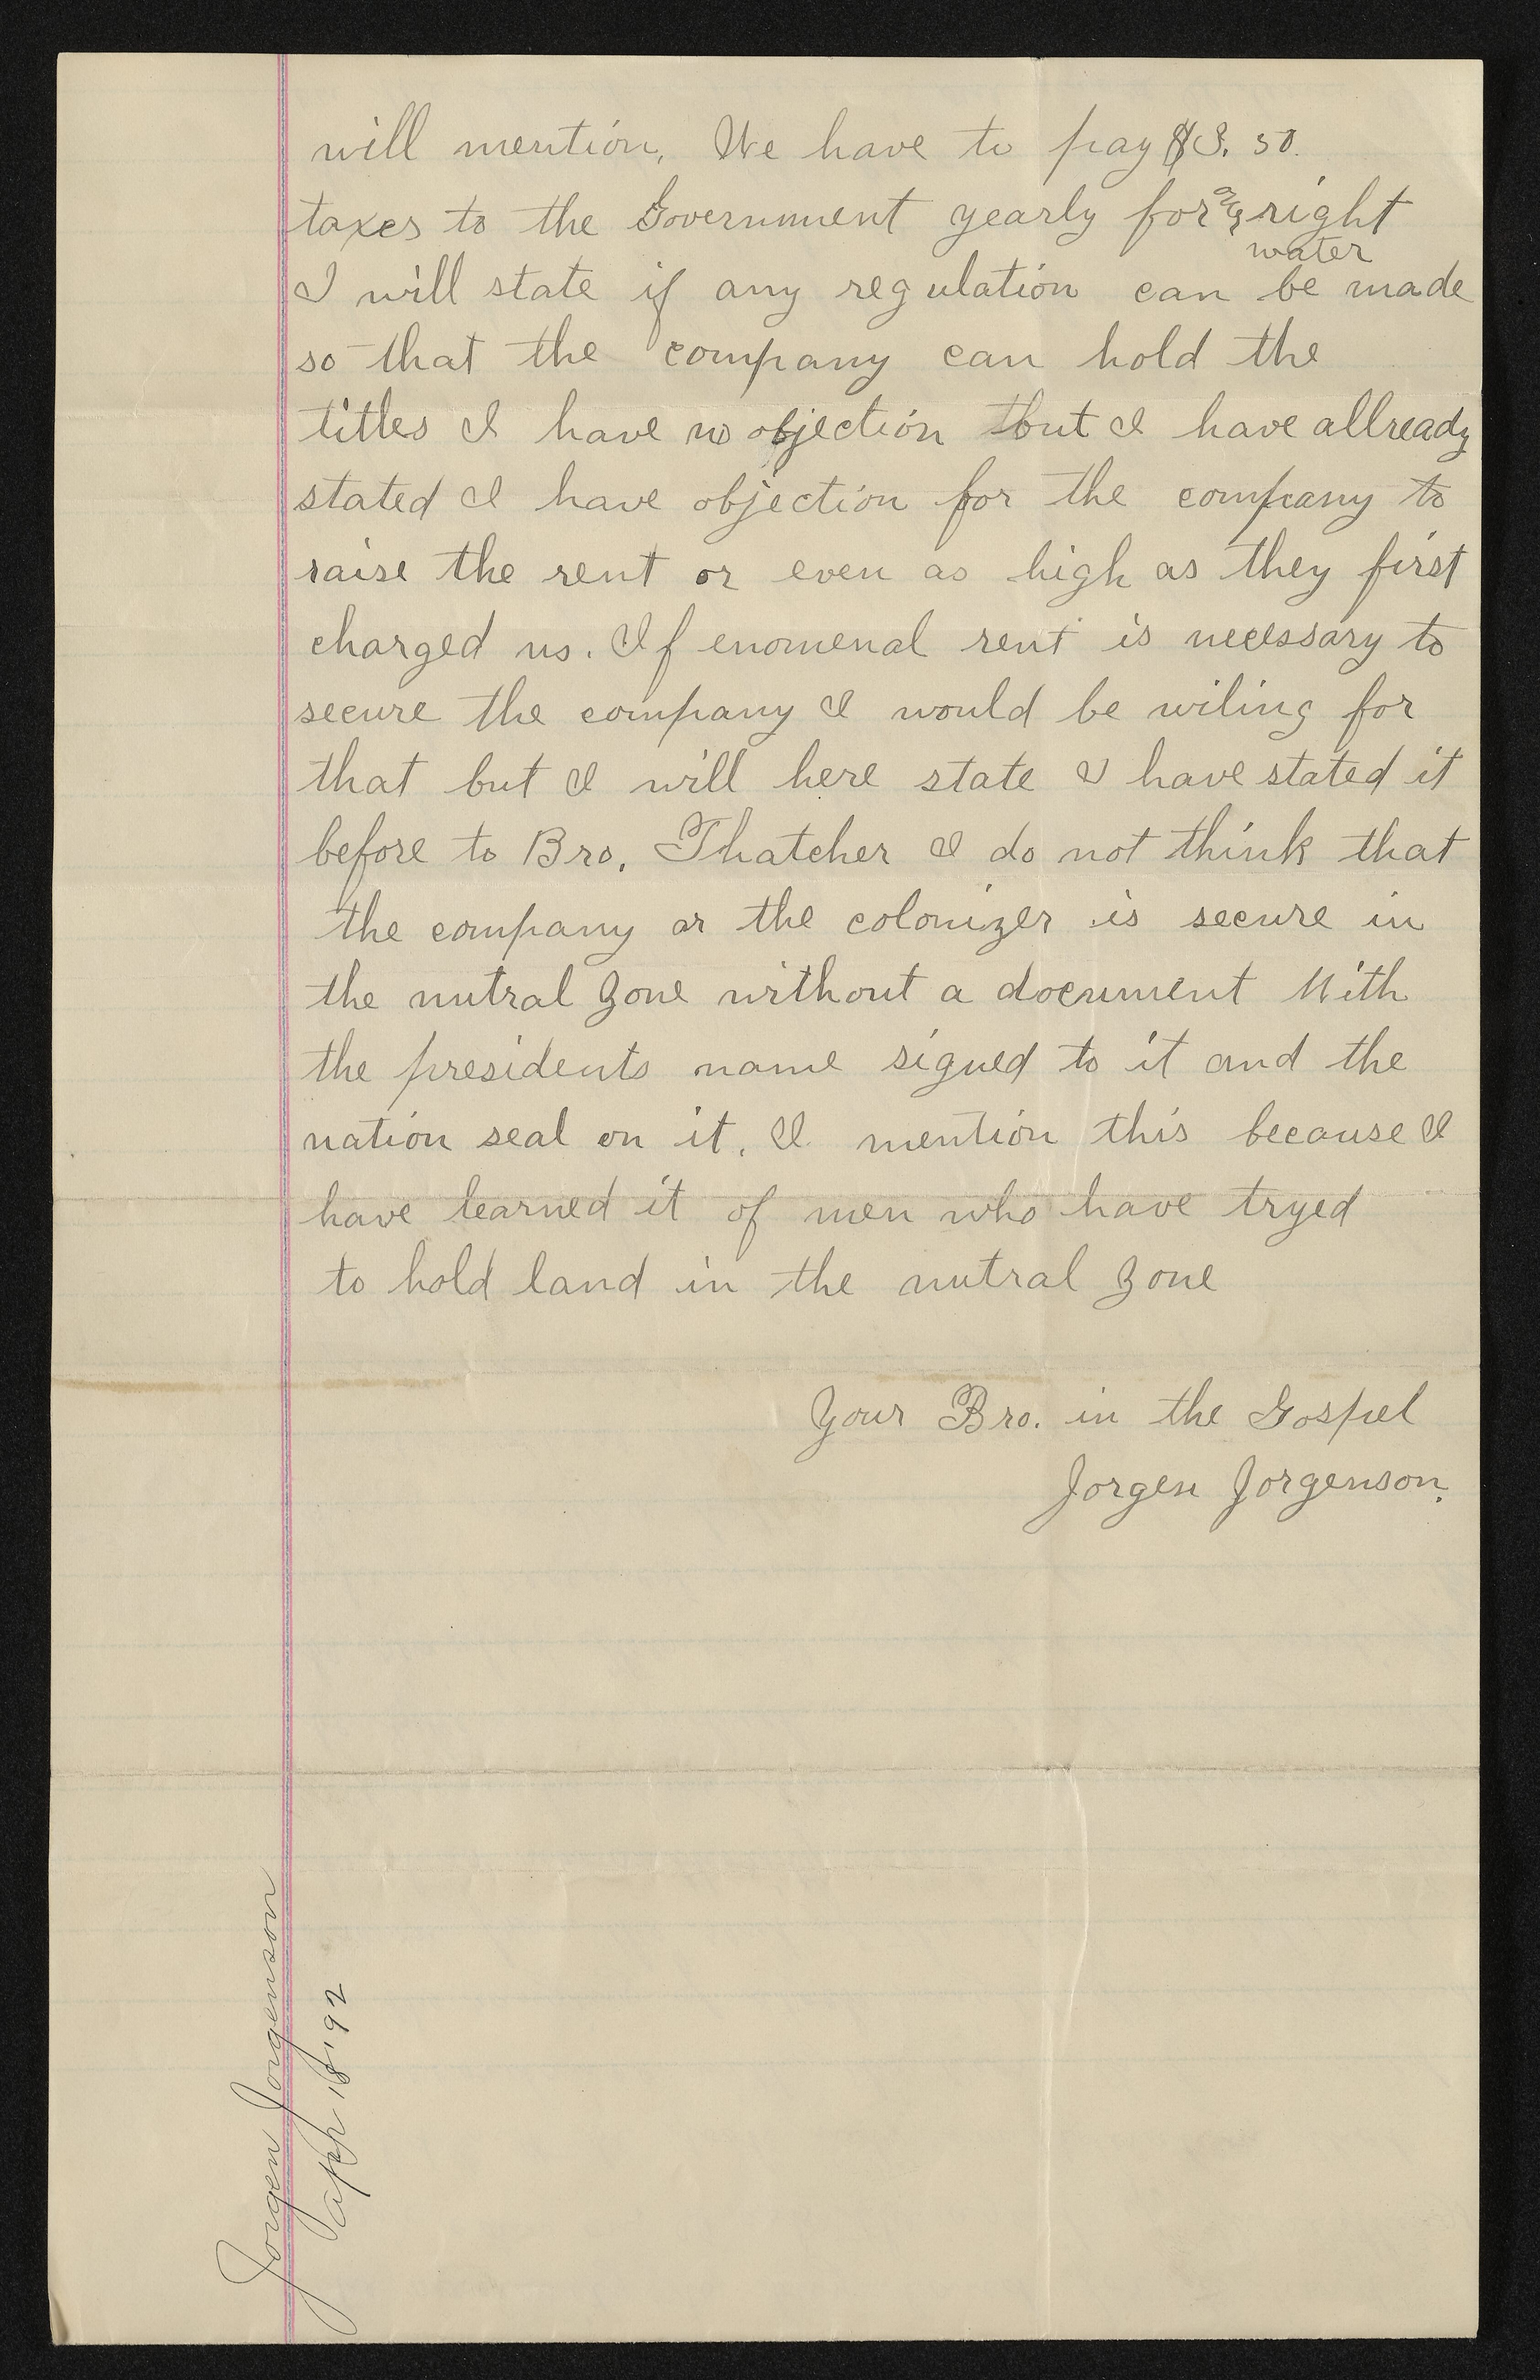 will mention, We have to pay $3.50.
taxes to the Government yearly for right
water
I will state if any regulation can be made
so that the company can hold the
titles I have no objection but I have allready
stated I have objection for the company to
raise the rent or even as high as they first
charged us. If enomenal rent is necessary to
secure the company I would be wiling for
that but I will here state I have stated it
before to Bro. Thatcher I do not think that
the company or the colonizer is secure in
the nutral zone without a document With
the presidents name signed to it and the
nation seal on it. I mention this because I
have learned it of men who have tryed
to hold land in the nutral zone
Your Bro. in the Gospel
Jorgen Jorgenson.
Jorgen Jorgenson
Apr 18 '92